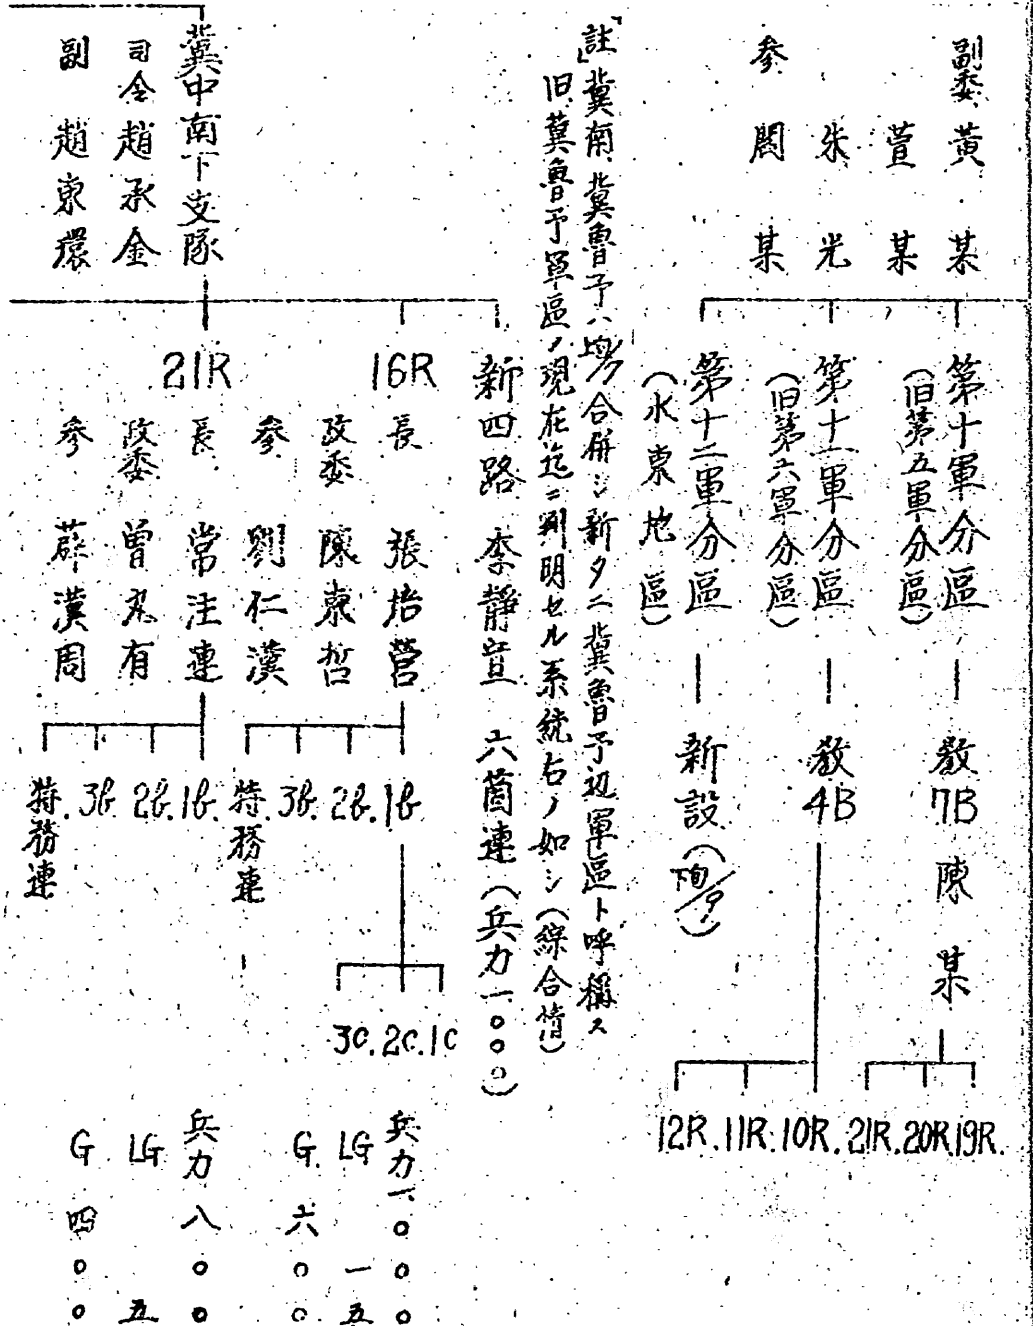 副委 黄某
萱某
朱光
参 閻某
第十軍分區
(旧第五軍分區)
教7B 陳某
19R.
20R
21R.
第十一軍分區
(旧第六軍分區)
教4B
10R.
11R.
12R.
第十二軍分區
(水東地區)
新設(下旬/9)
「註」冀南冀魯予ハ均ク合併シ新タニ冀魯予辺軍區ト呼稱ス
旧冀魯予軍區ノ現在迄ニ判明セル系統右ノ如シ(綜合情)
冀中南下支隊
司令 趙承金
副 趙東環
新四路 李靜宣 六箇連(兵力一〇〇〇)
16R
長 張培營
政委 陳東哲
參 劉仁漢
1b
2b.
3b.
特務連
1c
2c.
3c.
兵力一、〇〇〇
LG 一五
G. 六〇〇
21R
長 常注連
政委 曾 有
參 薛漢周
1b.
2b.
3b.
特務連
兵力八〇〇
LG 五
G 四〇〇